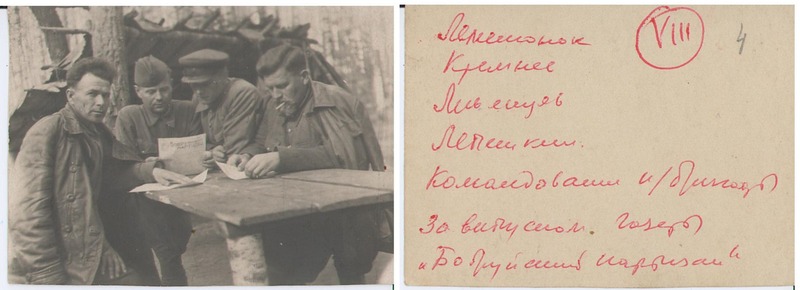 Лемешонок
Кремнев
Ливенцев
Лепешкин.
Командование п/бригады
За выпуском газеты
„Бобруйский партизан"
VIII
4